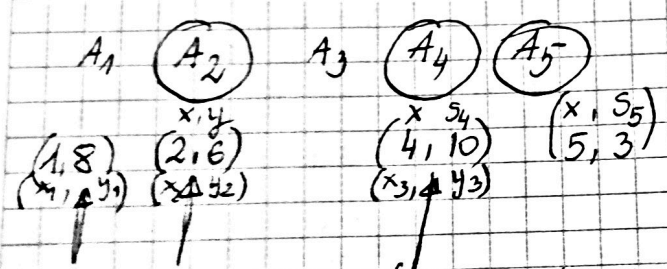 A1 A2 A3 A4 A5
x, y x S4 x, S5
(1, 8) (2, 6) (4, 10) 5, 3
(x1, y1) (x, y2) (x3, y3)